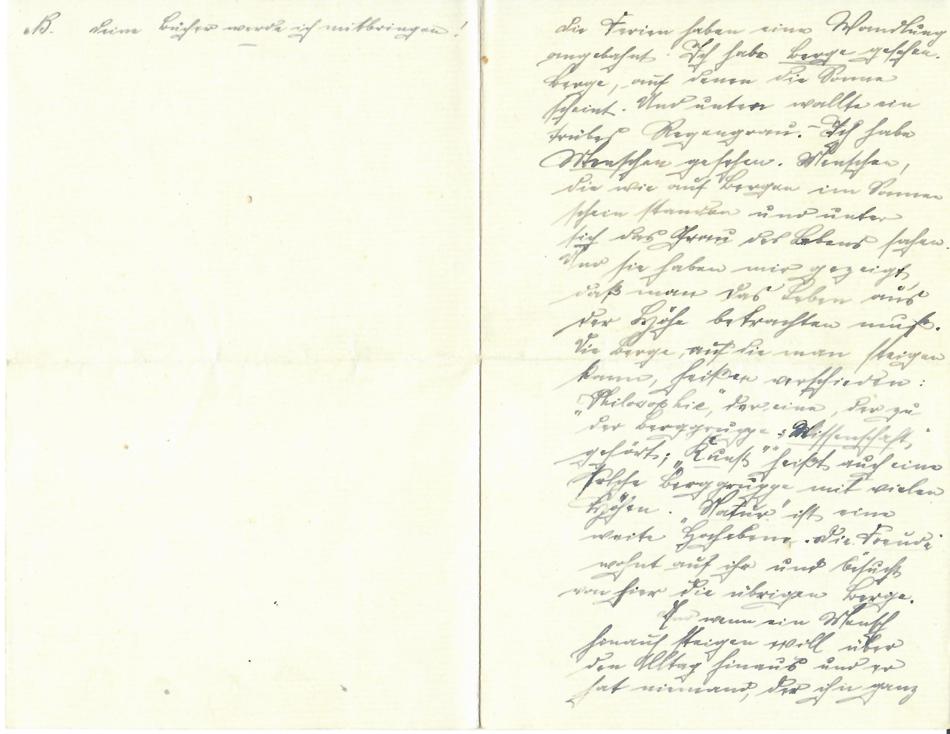 B. Deine Bücher werde ich mitbringen!
die Ferien haben eine Wandlung
angebahnt. Ich habe Berge gesehen.
Berge, auf denen die Sonne
scheint. Und unten wallte ein
trübes Regengrau. – Ich habe
Menschen gesehen. Menschen,
die wie auf Bergen im Sonnen
schein standen und unter
sich das Grau des Lebens sahen.
Und sie haben mir gezeigt,
daß man das Leben aus
der Höhe betrachten muß.
Die Berge, auf die man steigen
kann, heißen verschieden:
„Philosophie“, der eine, der zu
der Berggruppe: „Wissenschaft“
gehört; „Kunst“ heißt auch eine
solche Berggruppe mit vielen
Höhen. „Natur“ ist eine
weite Hochebene. Die Freude
wohnt auf ihr und besucht
von hier die übrigen Berge.
Und wenn ein Mensch
hinauf steigen will über
den Alltag hinaus und er
hat niemand, der ihn ganz